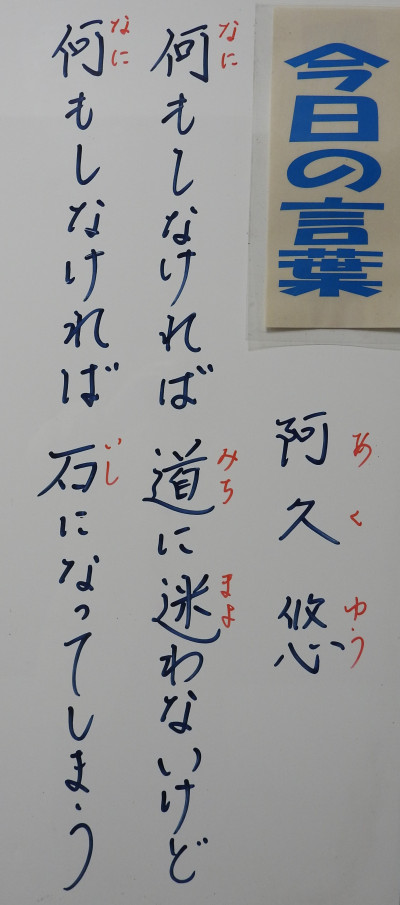 今日の言葉
阿久悠
あくゆう
何もしなければ道に迷わないけど
なにみちまよ
何もしなければ石になってしまう
なにいし